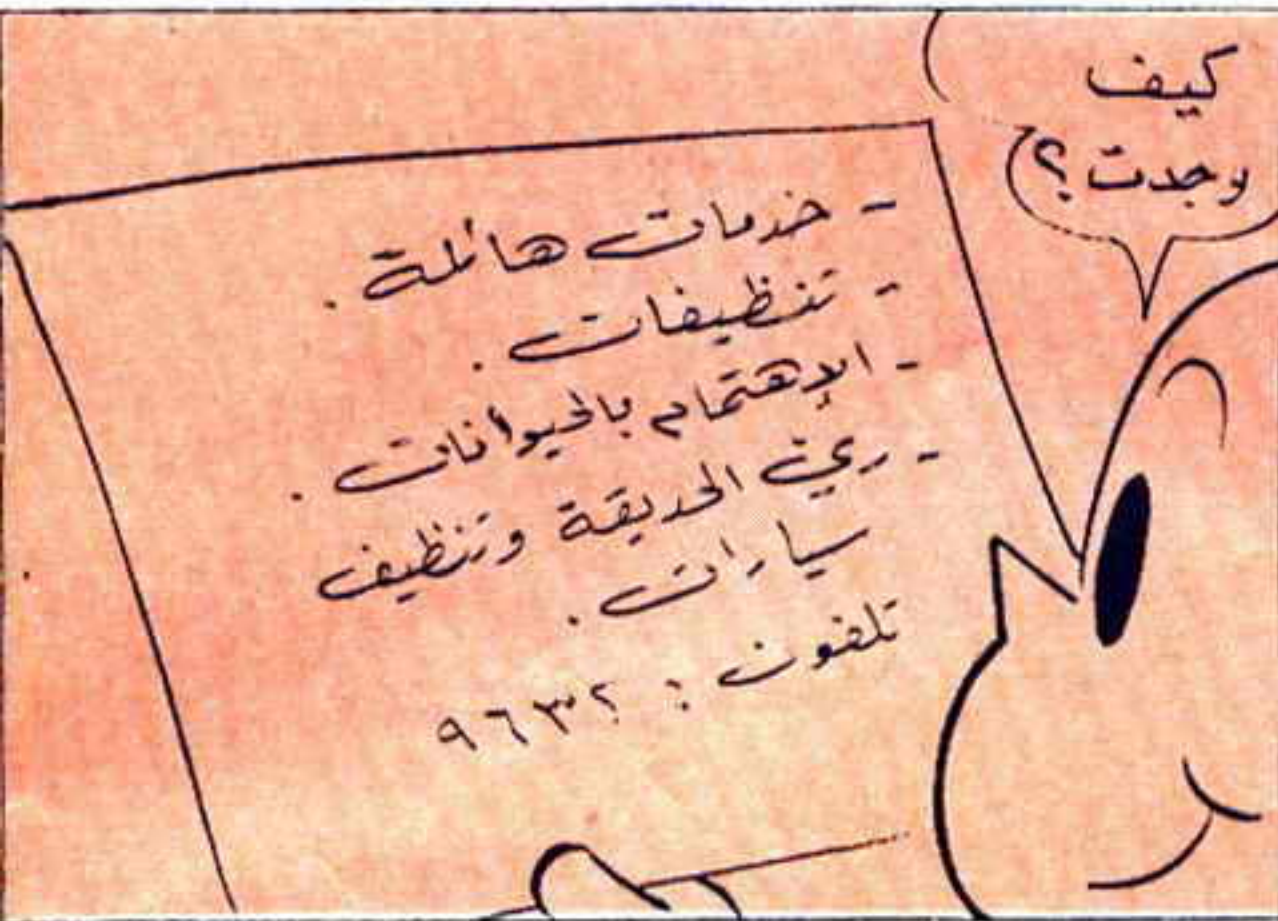 كيف
وجدت؟
- خدمات هائلة.
- تنظيفات.
- الإهتمام بالحيوانات.
- ريّ الحديقة وتنظيف
سيارات.
تلفون: ٩٦٣٢